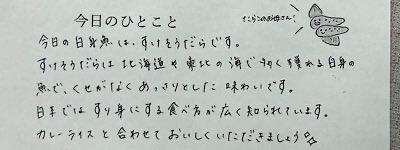 今日のひとこと
たらこのお母さん!
今日の白身魚は、すけそうだらです。
すけそうだらは北海道や東北の海で多く獲れる白身の
魚で、くせがなくあっさりとした味わいです。
日本ではすり身にする食べ方が広く知られています。
カレーライスと合わせておいしくいただきましょう